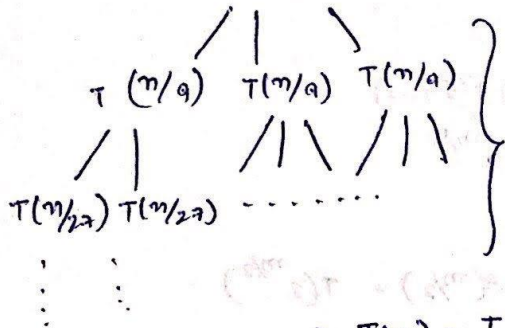 T (n/9) T(n/9) T(n/9)
T(n/27) T(n/27) .........
T(n) = T